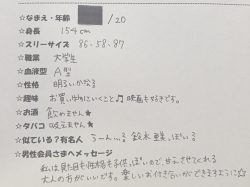 ☆なまえ・年齢 /20
☆身長 154cm
☆スリーサイズ 86・58・87
☆職業 大学生
☆血液型 A型
☆性格 明るいかなぁ
☆趣味 お買い物にいくこと♫ 映画も好きです。
☆お酒 飲めません★
☆タバコ 吸えません★
☆似ている?有名人 うーん…る 鈴木 っぽいる
☆男性会員さまへメッセージ
私は見た目も性格も子供っぽいので、甘えさせてくれる
大人の方がいいです。楽しいお付き合いができますように☆